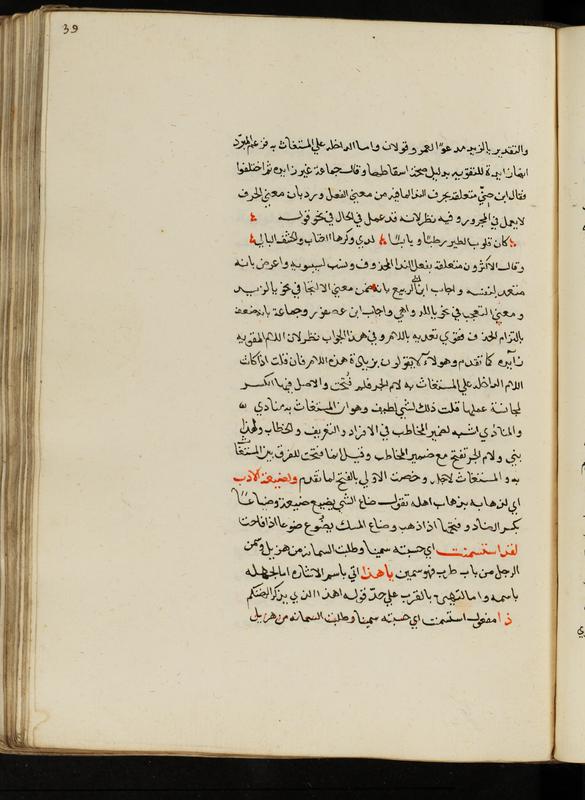 39
والتقدير بالزيد مدعوا لعمرو قولان واما الداخلة علي المستغاث به فزعم المبرد
انها زايدة للتقوية بدليل صحة اسقاطها وقال جماعة غير زايدة ثم اختلفوا
فقال ابن جني متعلقة بحرف الندا لما فيه من معني الفعل ورد بان معني الحرف
لا يعمل في المجرور وفيه نظر لانه قد عمل في الحال في نحو قوله
كان قلوب الطير رطبا ويابسا لدي وكرها العناب والحشف البالي
وقال الاكثرون متعلقة بفعل الندا المحذوف ونسب لسيبويه واعرض بانه
متعد بنفسه واجاب ابن ابي الربيع بانه ضمن معني الالتجا في نحو يا لزيد
ومعني التعجب في نحو يا للدواهي واجاب ابن عصفور وجماعة بانه ضعف
بالتزام الحذف فقوي تعديه باللام وفي هذا الجواب نظر لان اللام المقوية
زايدة كما تقدم وهولاء لا يقولون بزيادة هذه اللام فان قلت اذا كانت
اللام الداخلة علي المستغاث به لام الجر فلم فتحت والاصل فيها الكسر
لمجانسة عملها قلت ذلك لشي لطيف وهو ان المستغاث به منادي
والمنادي اشبه لضمير المخاطب في الافراد والتعريف والخطاب ولهذا
بني ولام الجر تفتح مع ضمير المخاطب وقيل انما فتحت للفرق بين المستغاث
به والمستغاث لاجله وخصت الاولي بالفتح لما تقدم ولضيعة الادب
اي لذهابه بذهاب اهله تقول ضاع الشي يضيع ضيعة وضياعا
بكسر الضاد وفتحها اذا ذهب وضاع المسك يضوع ضوعا اذا فاحت
لقد استسمنت اي حسبته سمينا وطلبت السمانة من هزيل وسمن
الرجل من باب طرب فهو سمين يا هذا اتي باسم الاشارة اما لجهله
باسمه واما للتهكم بالقرب علي حد قوله اهذا الذي يذكر الهتكم
ذا مفعول استسمنت اي حسبته سمينا وطلبت السمانة من هزيل